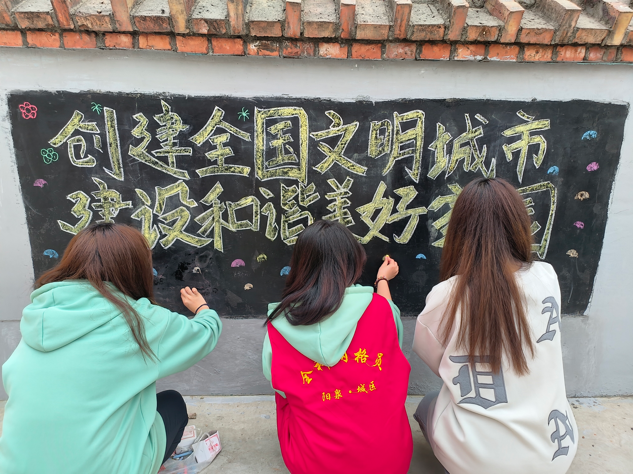 创建全国文明城市
建设和谐美好家园
全 网格员
阳泉·城区
A
D
A